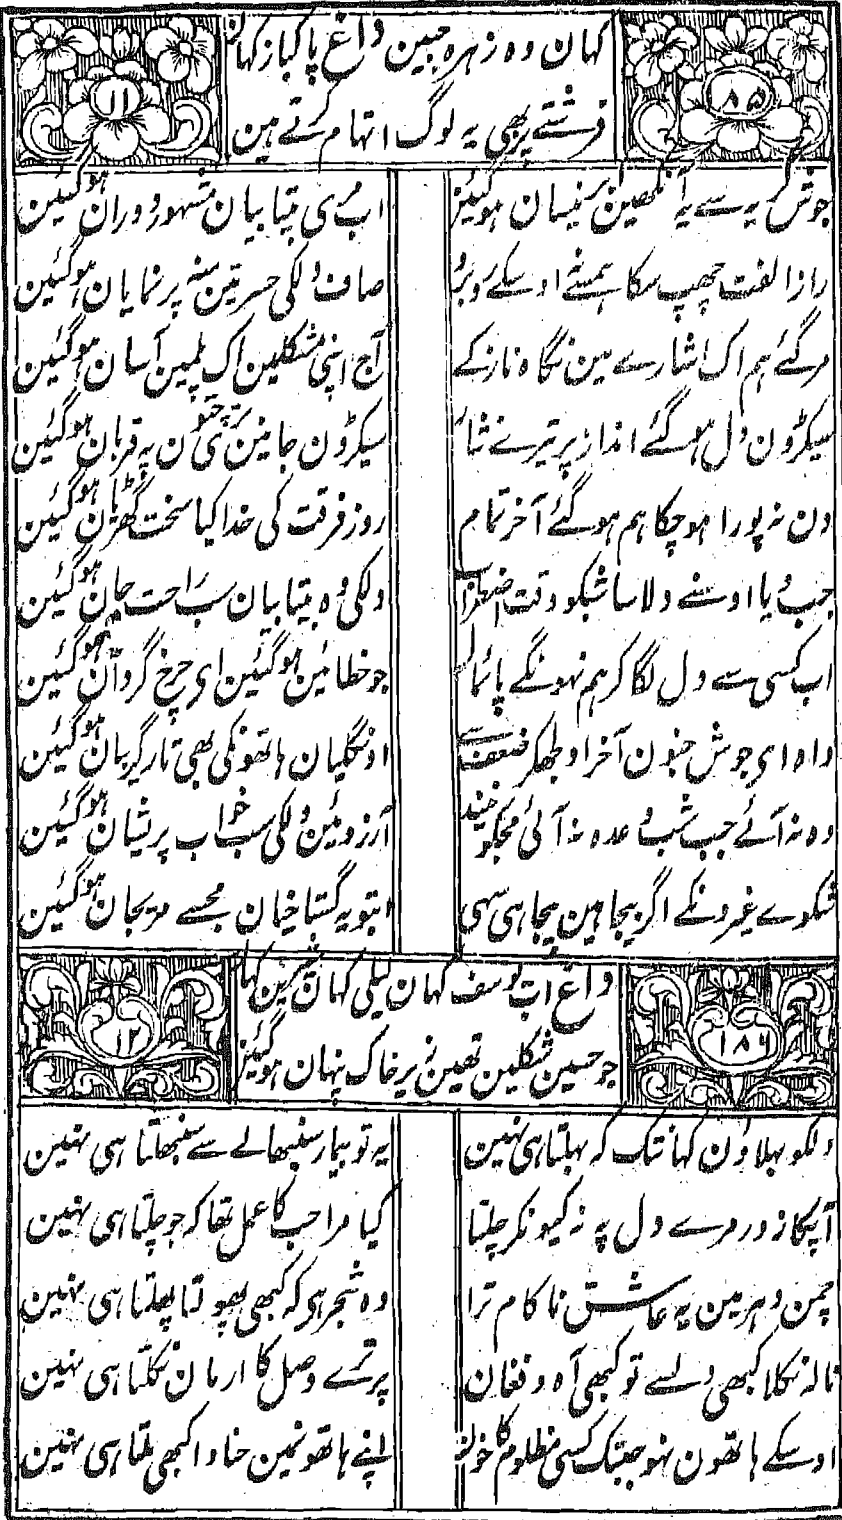 کہان وہ زہرہ جبین داغ پاکباز کہان
فرشتے پر بھی یہ لوگ اتہام کرتے ہین
۸۵
۱۱
جوش گریہ سے یہ آنکھین نیسان ہوگئین
اب مری بیتابیان مشہور دوران ہوگئین
راز الفت چھپ سکا ہمسے نہ اوسکے روبرو
صاف دلکی حسرتین منہ پر نمایان ہوگئین
مرگئے ہم اک اشارے مین نگاہ ناز کے
آج اپنی مشکلین اک پلمین آسان ہوگئین
سیکڑون دل ہوگئے انداز پر تیرے نثار
سیکڑون جانین تری چتون پہ قربان ہوگئین
دن نہ پورا ہوچکا ہم ہوگئے آخر تمام
روز فرقت کی خدایا سخت گھڑیان ہوگئین
جب دیا اوسنے دلاسا شبکو وقت اضطراب
دلکی وہ بیتابیان سب راحت جان ہوگئین
اب کسی سے دل لگا کر ہم نہونگے پائمال
جو خطائین ہوگئین ای چرخ گردان ہوگئین
واہ ای جوش جنون آخر اولجھکر ضعف سے
اونگلیان ہاتھونکی بھی تار گریبان ہوگئین
وہ نہ آئے جب شب وعدہ نہ آئی مجکو نیند
آرزوئین دلکی سب خواب پریشان ہوگئین
شکوے غیرونکے اگر بیجا ہین بیجا ہی سہی
ابتو یہ گستاخیان مجسے مریجان ہوگئین
داغ اب یوسف کہان لیلی کہان شیرین کہان
جو حسین شکلین تھین زیر خاک پنہان ہوگئین
۱۸۶
۱۲
دلکو بہلاؤن کہانتک کہ بہلتا ہی نہین
یہ تو بیمار سنبھالے سے سنبھلتا ہی نہین
آپکا زور مرے دل پہ نہ کیونکر چلتا
کیا مرا حب کا عمل تھا کہ جو چلتا ہی نہین
چمن دہر مین یہ عاشق ناکام ترا
وہ شجر ہی کہ کبھی پھولتا پھلتا ہی نہین
نالہ نکلا کبھی دلسے تو کبھی آہ و فغان
پر ترے وصل کا ارمان نکلتا ہی نہین
اوسکے ہاتھون نہو جبتک کسی مظلوم کا خون
اپنے ہاتھونمین حنا وا کبھی ملتا ہی نہین